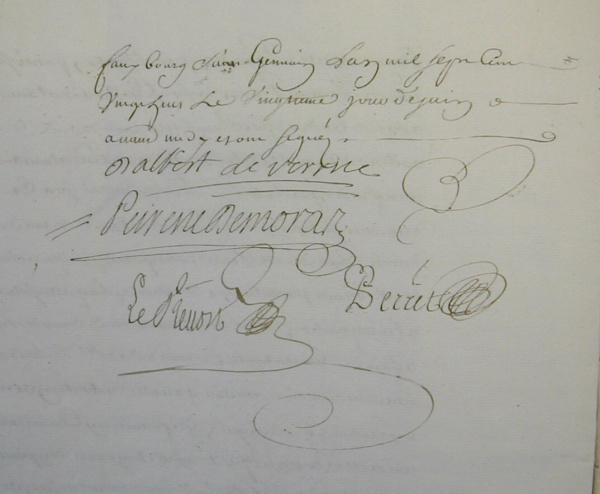 faux bourg Saint Germain Lan mil sept Cent
Vingt huit Le Vingtieme jour de juin
avant midy et ont signé
Dalbert de verrüe
Peirenc Demoras
Le Prevost Perret